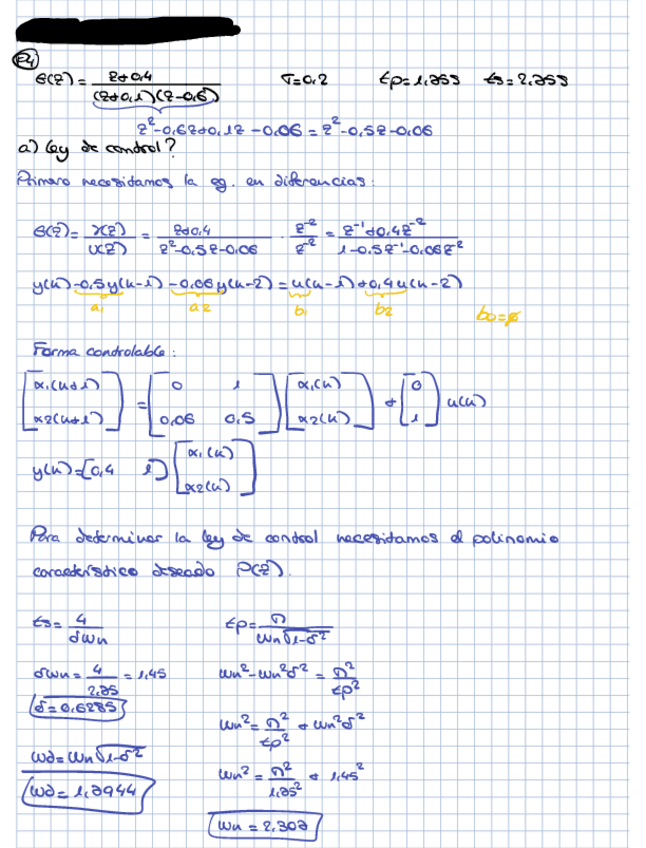 P4
G(z) = z+0,4 / (z+0,1)(z-0,6)    T=0,2    tp=1,75s    ts=2,75s
z²-0,6z+0,1z-0,06 = z²-0,5z-0,06
a) Ley de control?
Primero necesitamos la eq. en diferencias:
G(z) = Y(z)/U(z) = z+0,4 / z²-0,5z-0,06 · z⁻²/z⁻² = z⁻¹+0,4z⁻² / 1-0.5z⁻¹-0,06z²
y(k)-0,5y(k-1)-0,06y(k-2) = u(k-1)+0,4u(k-2)
a₁ a2 b₁ b2 b0=0
Forma controlable:
[x₁(k+1) x2(k+1)] = [0 1 0,06 0,5] [x₁(k) x2(k)] + [0 1] u(k)
y(k)=[0,4 1] [x₁(k) x2(k)]
Para determinar la ley de control necesitamos el polinomio
característico deseado P(z).
ts = 4/δwn    tp = π/wn√1-δ²
δwn = 4/2,75 = 1,45    wn²-wn²δ² = π²/tp²
δ=0,6285
wn² = π²/tp² + wn²δ²
wd = wn√1-δ²
wn² = π²/1,75² + 1,45²
wd = 1,7944
wn = 2,307